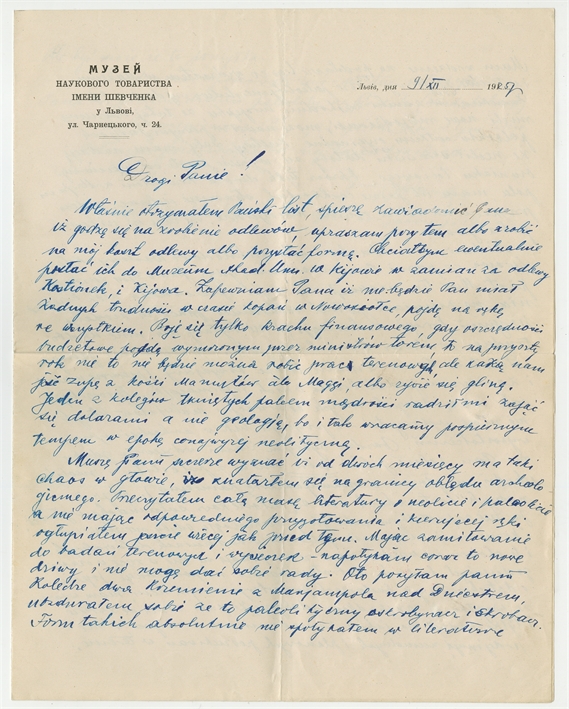 МУЗЕЙ
НАУКОВОГО ТОВАРИСТВА
ІМЕНИ ШЕВЧЕНКА
у Львові,
ул. Чарнецького, ч. 24.
Львів, дня 9/XII 1925
Drogi Panie!
Właśnie otrzymałem Pański list, spieszę zawiadomić
iż godzę się na zrobienie odlewów, upraszam przy tem albo zrobić
na mój koszt odlewy albo przysłać formę. Chciałbym ewentualnie
posłać ich do Muzeum Akad. Um. w Kijowie w zamian za odlewy
Kostionek, i Kijowa. Zapewniam Pana iż nie będzie Pan miał
żadnych trudności w czasie kopań w Nowosiółce, pójdą na rękę
ze wszystkiem. Boję się tylko krachu finansowego, gdy oszczędności
budżetowe pójdą wymronym przez ministrów torem, to na przyszły
rok nie to nie będzie można robić prac terenowych, ale każą nam
jeść zupę z kości Mamutów ala Maggi, albo żywić się gliną.
Jeden z kolegów tkniętych palcem mądrości radził mi zająć
się dolarami a nie geologią, bo i tak wracamy pospiesznym
tempem w epokę conajwyżej neolityczną.
Muszę Panu szczerze wyznać iż od dwóch miesięcy mam taki
chaos w głowie, znalazłem się na granicy obłędu archeolo
gicznego. Przeczytałem całą masę literatury o neolicie i paleolicie
a nie mając odpowiedniego przygotowania i kierującej ręki
ogłupiałem jeszcze więcej jak przed tem. Mając zamiłowanie
do badań terenowych i wycieczek napotykam coraz to nowe
dziwy i nie mogę dać sobie rady. Oto posyłam panu
Koledze dwa Krzemienie z Marjampola nad Dniestrem,
ubzdurałem sobie że to paleolityczny i skrobacz.
Form takich absolutnie nie spotykałem w literaturze